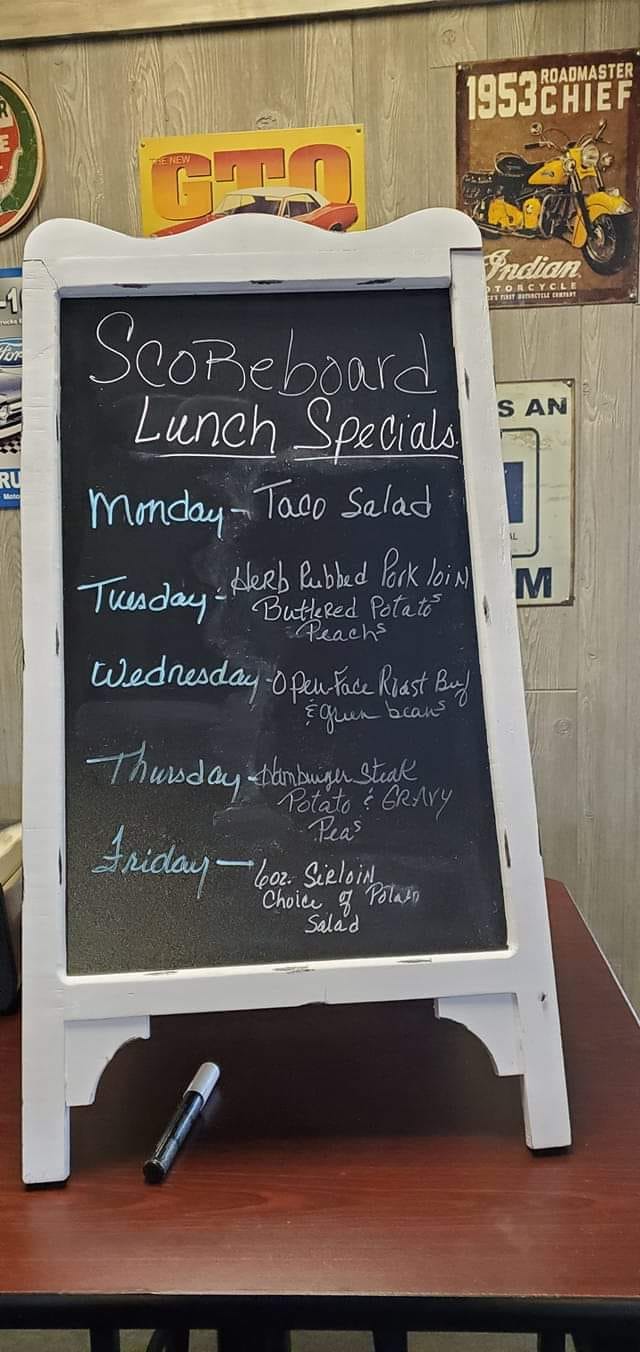 THE NEW
GTO
1953 ROADMASTER
CHIEF
Indian
MOTORCYCLE
Ford
S AN
M
ScoReboard
Lunch Specials
Monday - Taco Salad
Tuesday - Herb Rubbed Pork loin
Buttered Potatos
Peachs
Wednesday - Open-Face Roast Beef
& green beans
Thursday - Hamburger Steak
Potato & GRAVY
Peas
Friday - 6oz. Sirloin
Choice of Potato
Salad